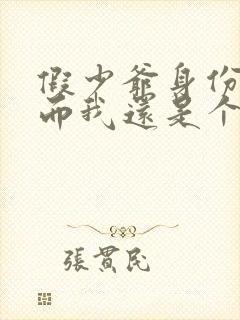 假少爺身份
而我還是个
張貫民